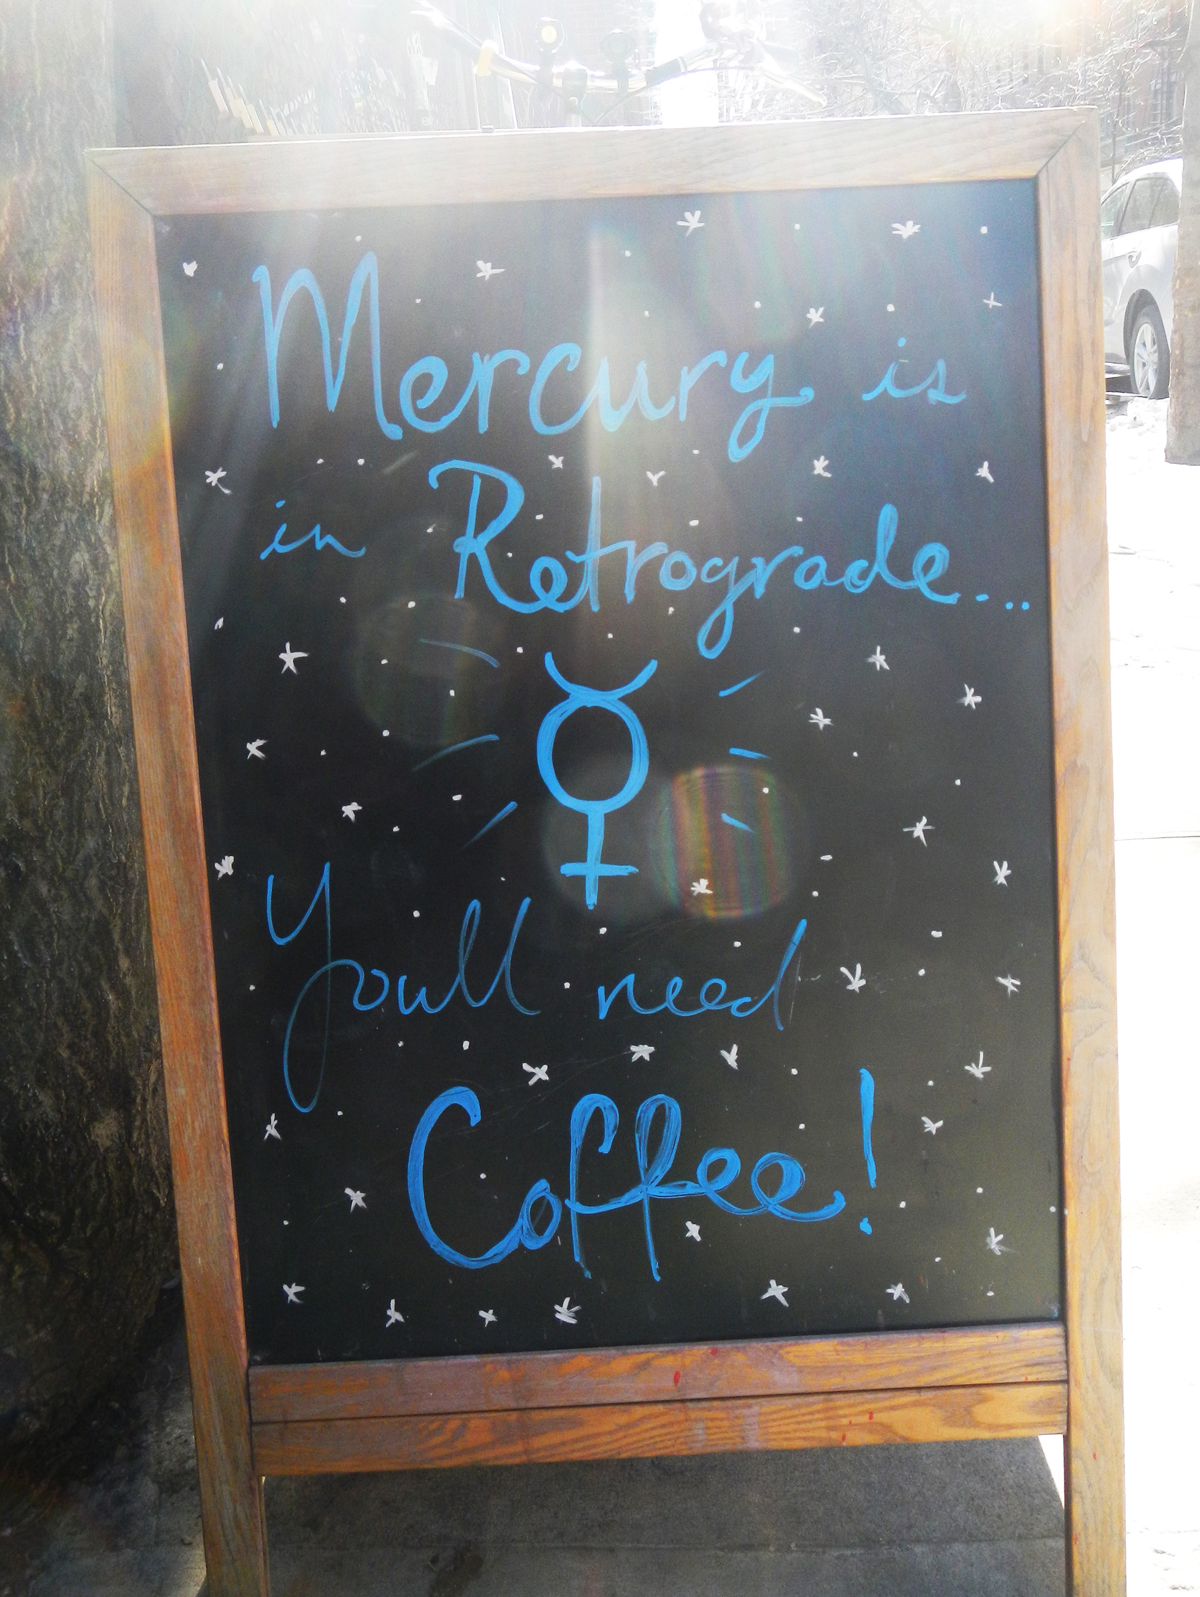 Mercury is
in Retrograde...
☿
Youll need
Coffee!